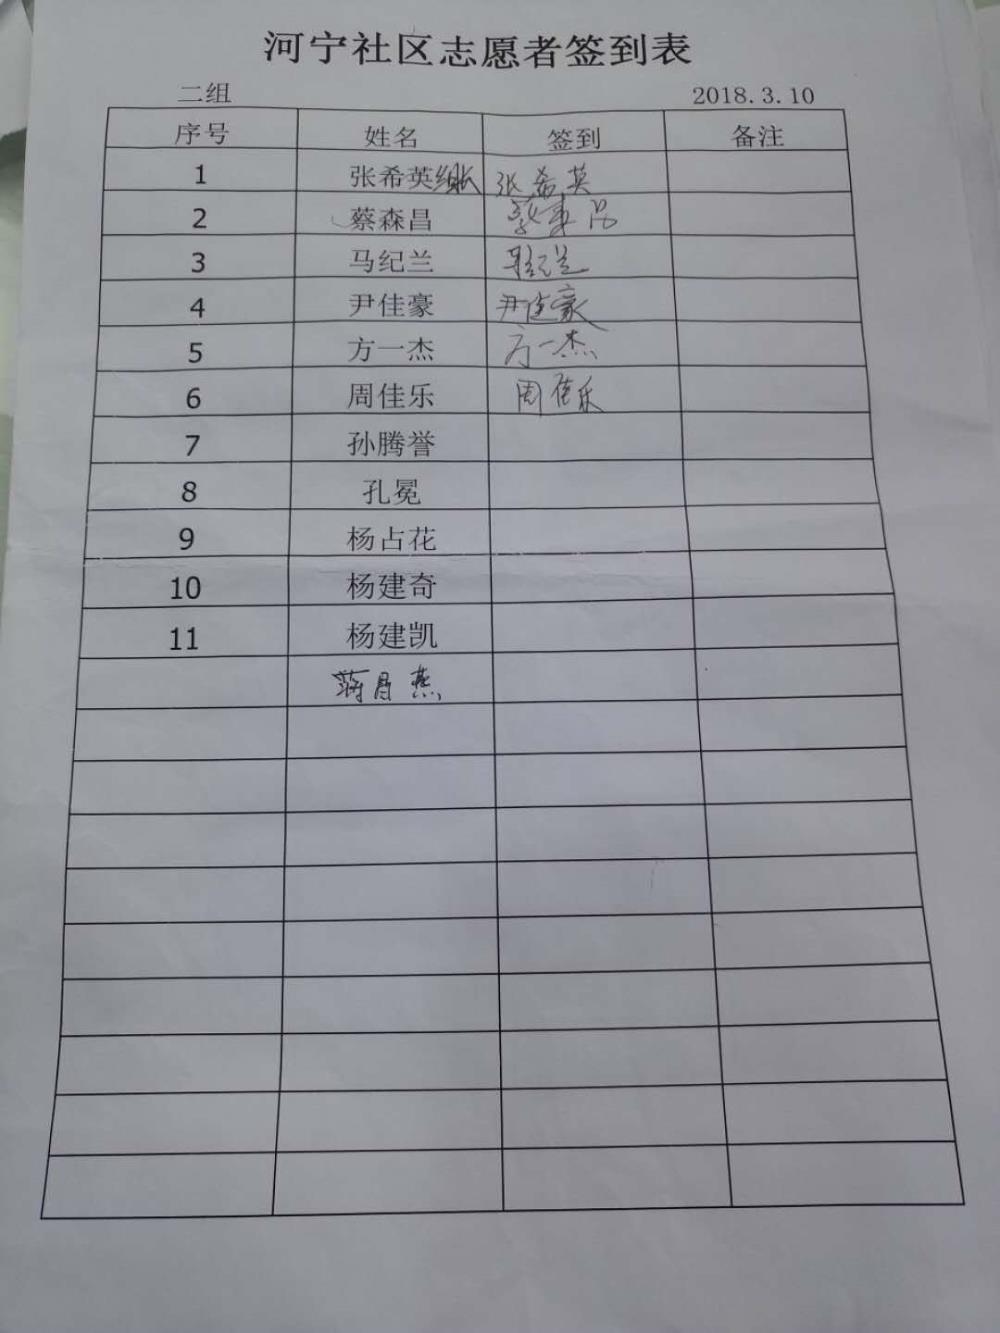 河宁社区志愿者签到表
二组 2018.3.10
序号 姓名 签到 备注
1 张希英组长 张希英
2 蔡森昌 蔡森昌
3 马纪兰 马纪兰
4 尹佳豪 尹佳豪
5 方一杰 方一杰
6 周佳乐 周佳乐
7 孙腾誉
8 孔冕
9 杨占花
10 杨建奇
11 杨建凯
蒋昌燕